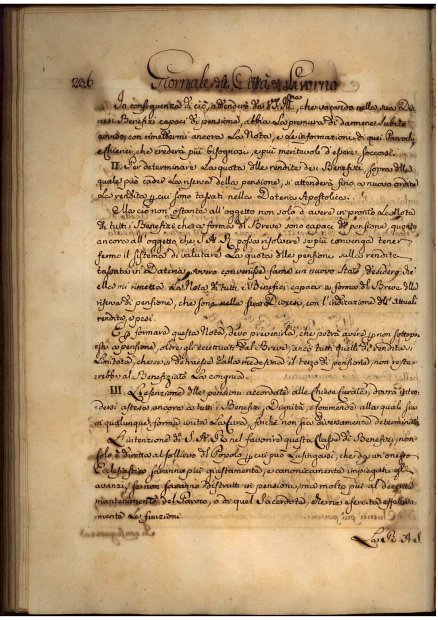 226 Giornale della Città di Livorno
In conseguenza di ciò, attenderà da V.S. Ill.ma, che vacando nella sua Dio
cesi Benefizi capaci di pensione, abbia la premura di darmene subito
avviso, con rimettermi ancora la Nota, e le informazioni di quei Parrochi
e Chierici, che crederà più bisognosi, e più meritevoli d'essere soccorsi.
II. Per determinare la quota delle rendite dei Benefizi, sopra della
quale può cader la riserva della pensione, si attenderà fino a nuovo ordine
la rendita p cui sono tassati nella Dateria Apostolica.
Ma ciò non ostante all'oggetto non solo d'avere in pronto la Nota
di tutti i Benefizi che a forma del Breve sono capaci di pensione, quanto
ancora all'oggetto che S.A.R. possa risolvere se più convenga tener
fermo il sistema di valutare la quota delle pensioni sulla rendita
tassata in Dateria, ovvero convenisse farne un nuovo Stato, desidero che
ella mi rimetta la Nota di tutti i Benefizi capaci a forma del Breve della
riserva di pensione, che sono nella sua Diocesi, con l'indicazione dell'attuali
rendite, e pesi.
E a formare questa Nota, devo prevenirla, che potrà avere p non sottopo
sti a pensione, oltre gli eccettuati dal Breve, anco tutti quelli di rendita
limitata, che se si detraesse dalla medesima il terzo di pensione non reste
rebbe al Benefiziato la congrua.
III. L'esenzione delle pensioni accordata alle Chiese Curate, dovrà inten
dersi estesa ancora a tutti i Benefizi, Dignità, e Commende alla quali sia
in qualunque forma unita la cura, finchè non sia diversamente determinato.
L'intenzione di S.A.R. nel favorire questa Classe di Benefizi, non
solo è diretta al sollievo del Popolo, p cui può lusingarsi, che da un onesto
Ecclesiastico saranno più giustamente, e canonicamente impiegati gli
avanzi, se non saranno distratti in pensioni, ma molto più al decente
mantenimento del Paroco, o di quel Sacerdote, che ne esercita effettiva
mente le funzioni.
La R. A. S.